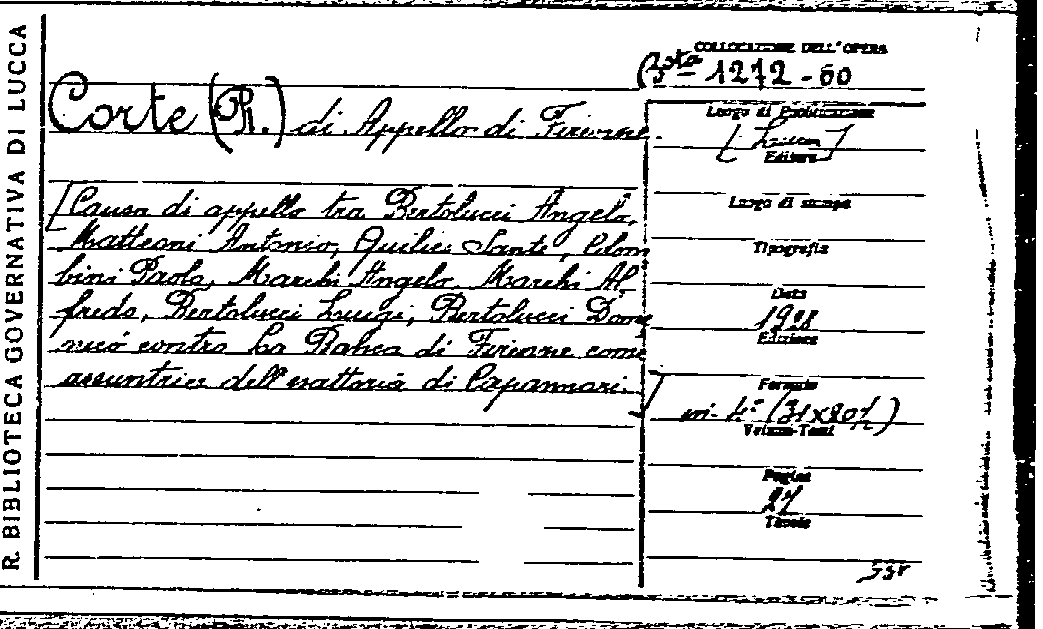 R. BIBLIOTECA GOVERNATIVA DI LUCCA
COLLOCAZIONE DELL'OPERA
Bsta 1272-60
Corte (R.) di Appello di Firenze.
[Causa di appello tra Bertolucci Angelo,
Matteoni Antonio, Quilici Sante, Colom
bini Paolo, Marchi Angelo, Marchi Al
fredo, Bertolucci Luigi, Bertolucci Dome
nico contro la Banca di Firenze come
assuntrice dell'esattoria di Capannori.]
Luogo di Pubblicazione
[Lucca]
Editore
Luogo di stampa
Tipografia
Data
1928
Edizione
Formato
in-4° (31x20½)
Volume-Tomi
Pagine
27
Tavole